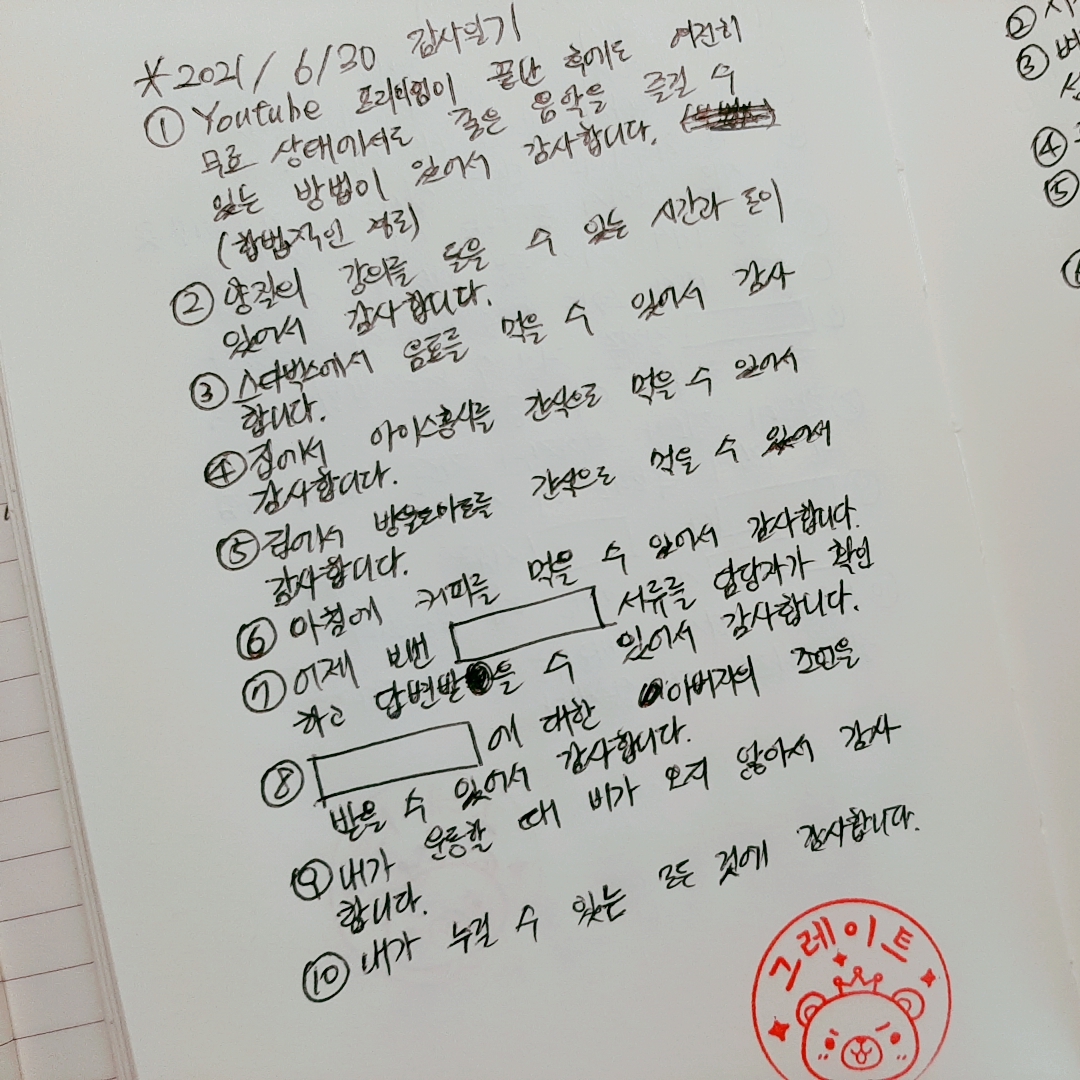 * 2021/6/30 감사일기
① Youtube 프리미엄이 끝난 후에도 여전히
무료 상태에서도 좋은 음악을 즐길 수
있는 방법이 있어서 감사합니다.
(합법적인 경로)
② 양질의 강의를 들을 수 있는 시간과 돈이
있어서 감사합니다.
③ 스타벅스에서 음료를 먹을 수 있어서 감사
합니다.
④ 집에서 아이스홍시를 간식으로 먹을 수 있어서
감사합니다.
⑤ 집에서 방울토마토를 간식으로 먹을 수 있어서
감사합니다.
⑥ 아침에 커피를 먹을 수 있어서 감사합니다.
⑦ 어제 보낸 서류를 담당자가 확인
하고 답변받을 수 있어서 감사합니다.
⑧ 에 대한 아버지의 조언을
받을 수 있어서 감사합니다.
⑨ 내가 운동할 때 비가 오지 않아서 감사
합니다.
⑩ 내가 누릴 수 있는 모든 것에 감사합니다.
그레이트
②
③
④
⑤